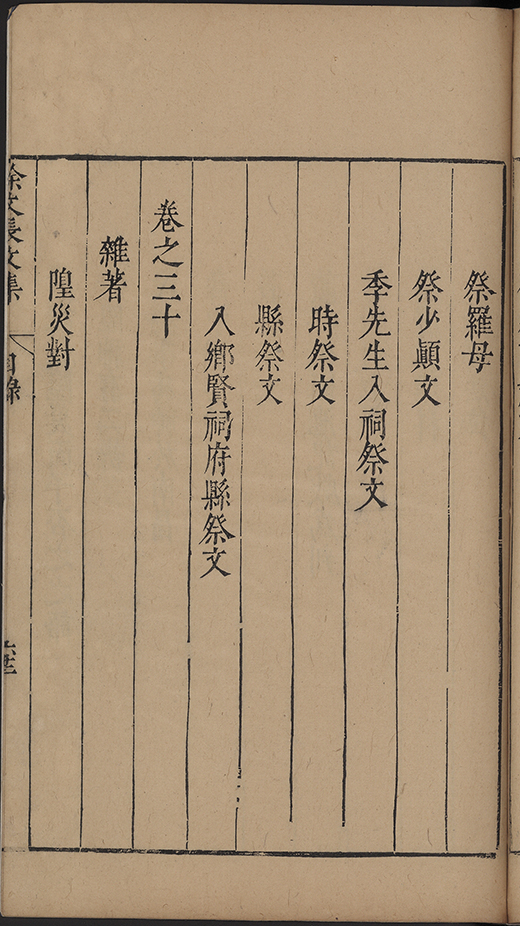 祭羅母
祭少顚文
季先生入祠祭文
時祭文
縣祭文
入鄉賢祠府縣祭文
卷之三十
雜著
隍災對
徐文長文集
目錄